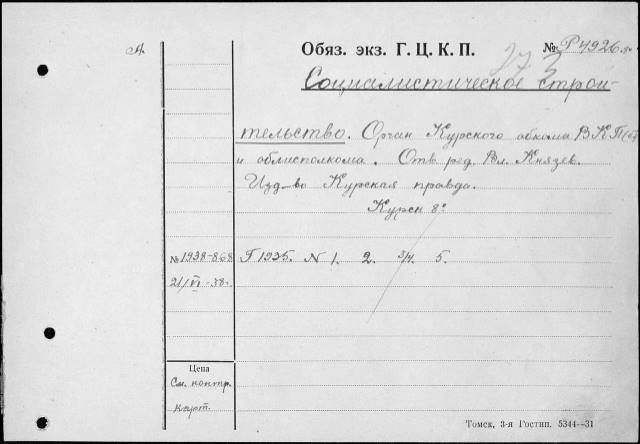 А.
Обяз. экз. Г. Ц. К. П. № Р4926
Социалистическое строи-
тельство. Орган Курского обкома ВКП(б)
и облисполкома. Отв. ред. Вл. Князев.
Изд-во Курская правда.
Курск 8°
№ 1938-868 Г 1935. N 1. 2. 3/4. 5.
21/VI -38г.
Цена
См. контр.
карт.
Томск, 3-я Гостип. 5344—31